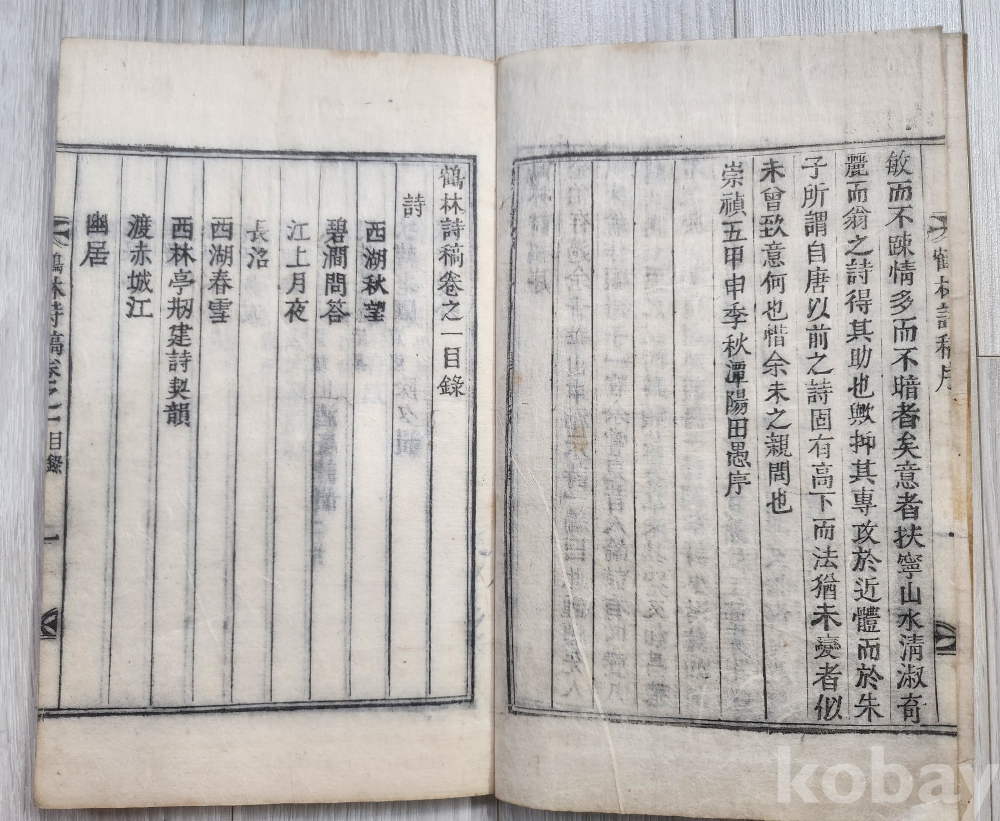 鶴林詩稿序
敏而不疎情多而不暗者矣意者扶寧山水清淑奇
麗而翁之詩得其助也歟抑其專攻於近體而於朱
子所謂自唐以前之詩固有高下而法猶未變者似
未曾致意何也惜余未之親問也
崇禎五甲申季秋潭陽田愚序
鶴林詩稿卷之一目錄
詩
西湖秋望
碧澗問答
江上月夜
長洺
西湖春雪
西林亭刱建詩契韻
渡赤城江
幽居
鶴林詩稿卷之一目錄
一
kobay